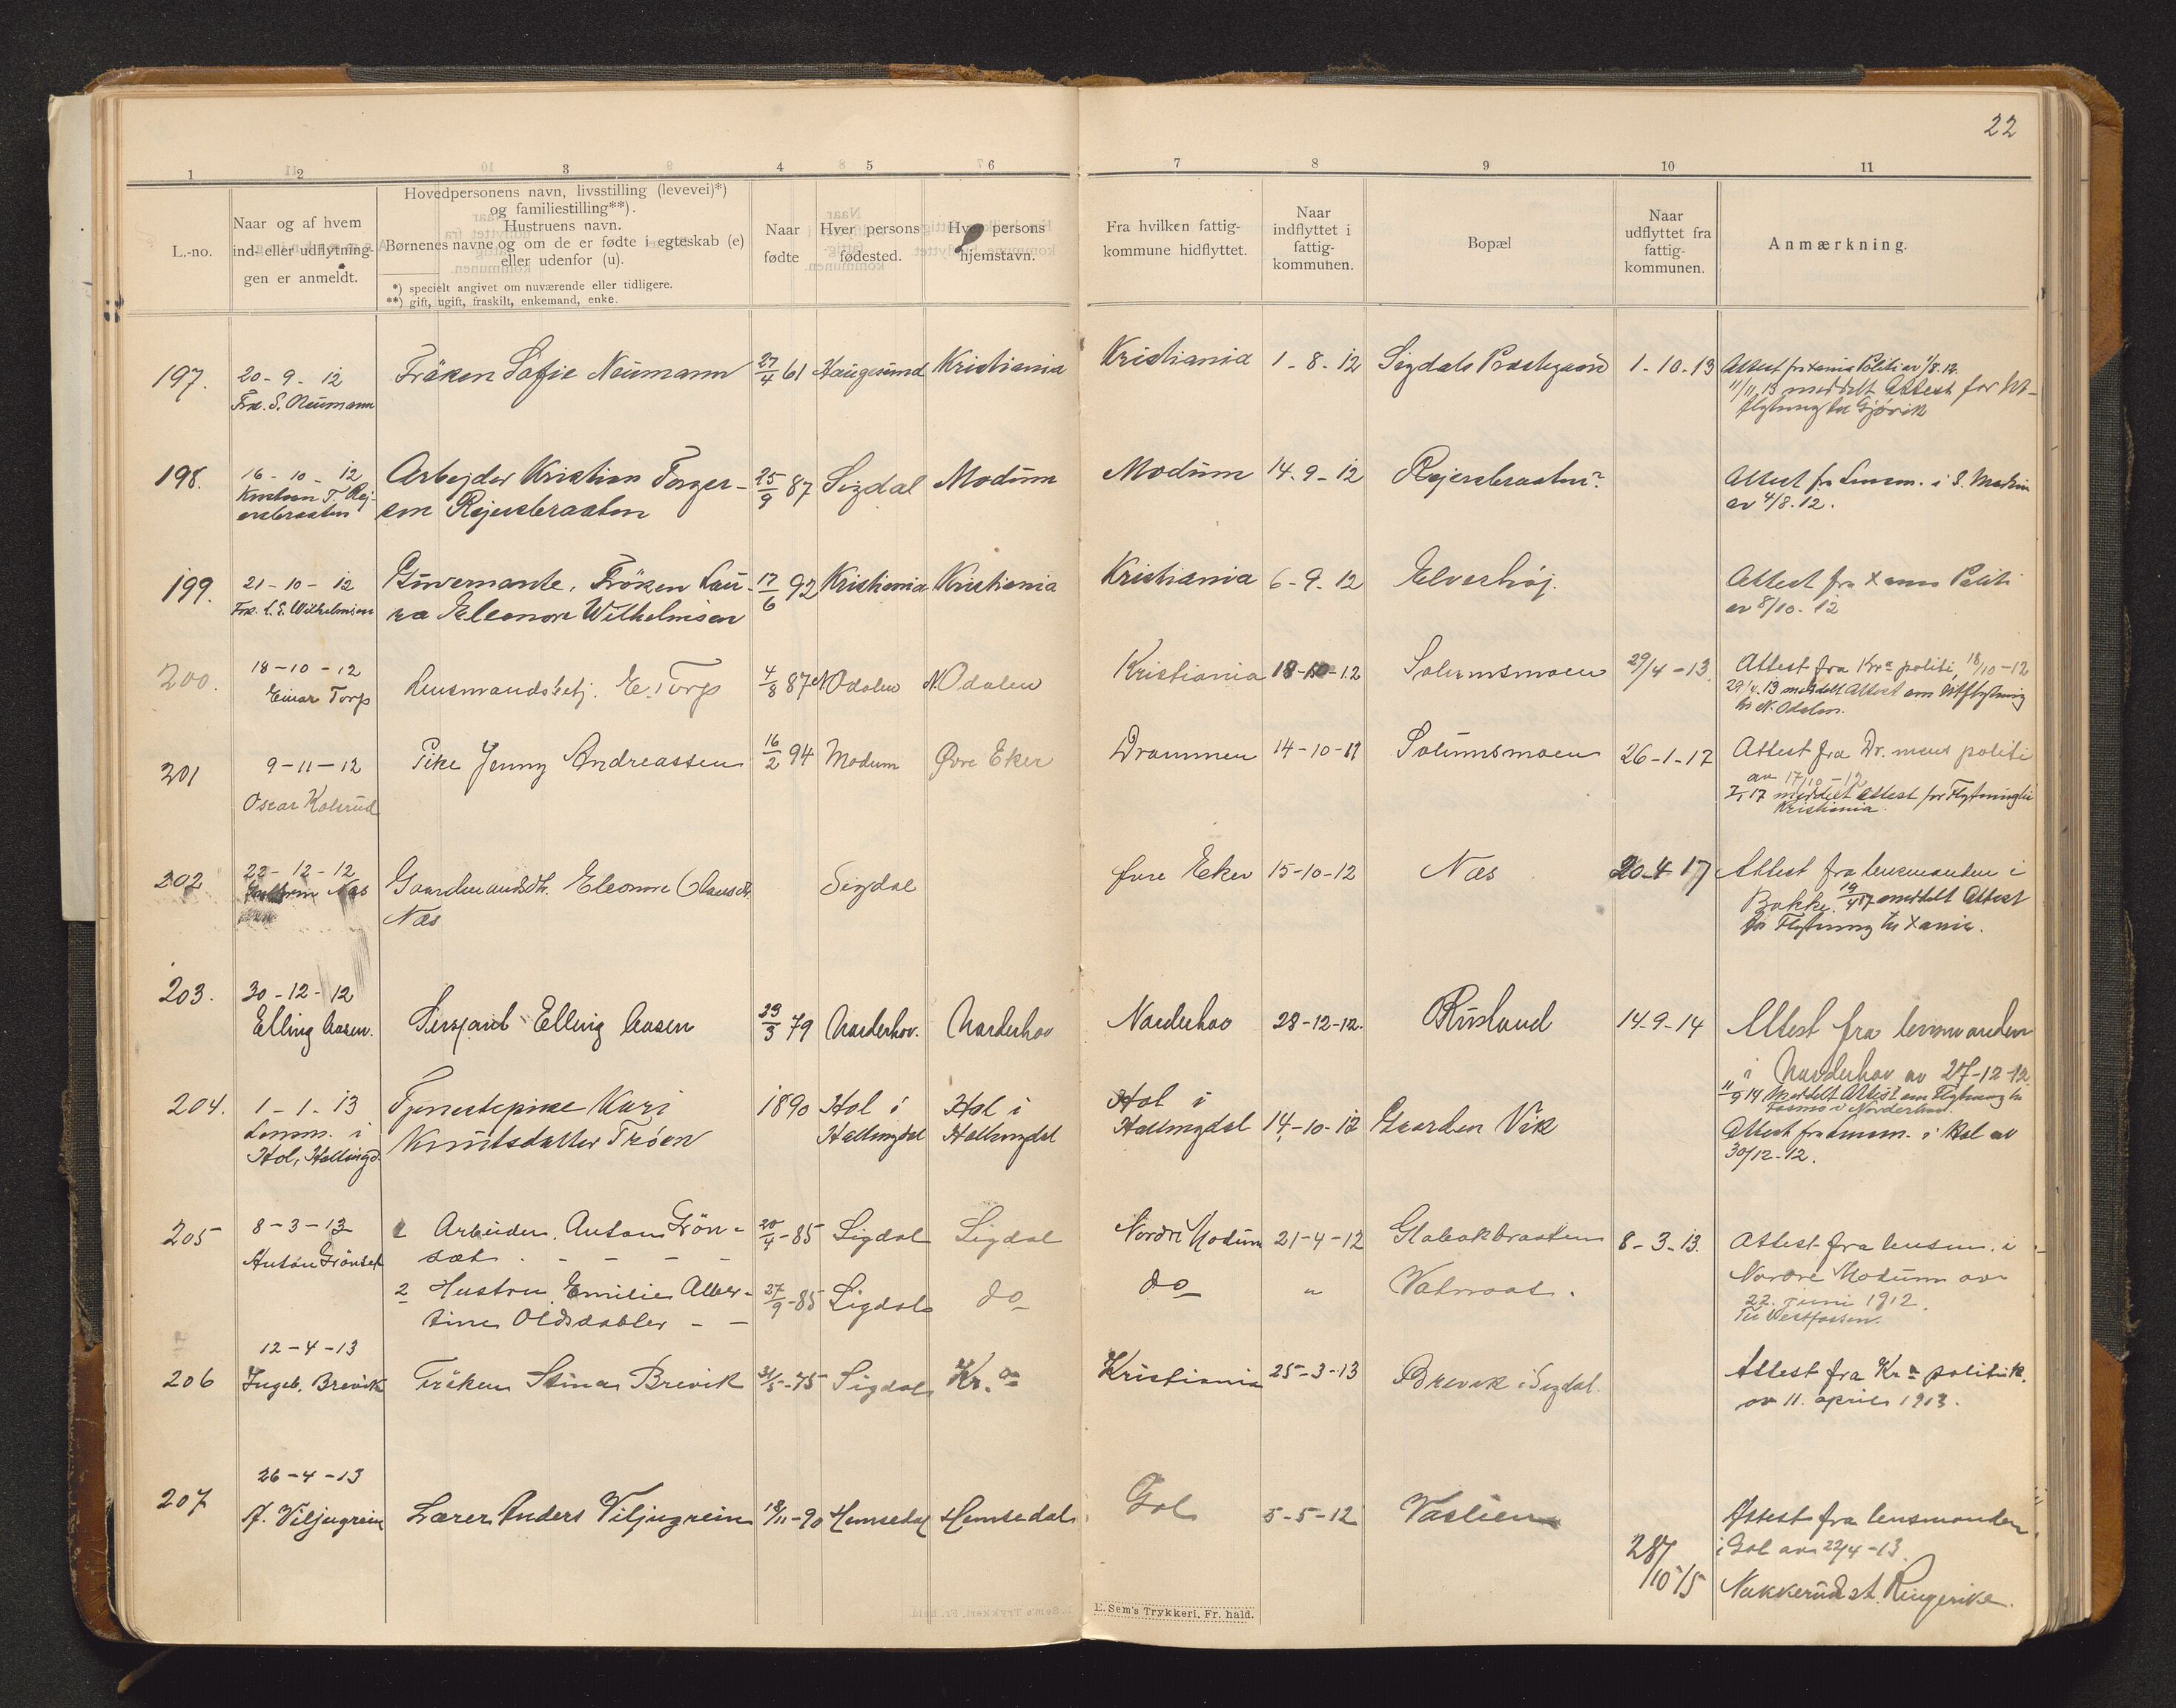 22
1 2 3 4 5 6 7 8 9 10 11
L.-no.
Naar og af hvem
ind- eller udflytnin-
gen er anmeldt.
Hovedpersonens navn, livsstilling (levevei)*)
og familiestilling**).
Hustruens navn.
Børnenes navne og om de er fødte i egteskab (e)
eller udenfor (u).
*) specielt angivet om nuværende eller tidligere.
**) gift, ugift, fraskilt, enkemand, enke.
Naar
fødte
Hver persons
fødested.
Hver persons
hjemstavn.
Fra hvilken fattig-
kommune hidflyttet.
Naar
indflyttet i
fattig-
kommunen.
Bopæl
Naar
udflyttet fra
fattig-
kommunen.
Anmærkning.
197. 20-9-12 Frøken Sofie Neumann 27/4 61 Haugesund Kristiania Kristiania 1-8-12 Sigdals Prestegaard 1-10-13 Attest fra xania Politi av 1/8.12.
Frk. S. Neumann
11/11.13 meddelt Attest for Ut-
flytning til Gjøvik
198. 16-10-12 Arbejder Kristian Torger- 25/9 87 Sigdal Modum Modum 14-9-12 Rejersbraaten Attest fra Lensm. i S. Modum
Kristian T. Rej- sen Rejersbraaten av 4/8.12.
ersbraaten
199. 21-10-12 Guvernante, Frøken Lau- 17/6 92 Kristiania Kristiania Kristiania 6-9-12 Elverhøj. Attest fra xania Politi
Frk. L. E. Wilhelmsen ra Eleonore Wilhelmsen av 8/10-12
200. 18-10-12 Lensmandsbetj. E. Torp 4/8 87 N. Odalen N. Odalen Kristiania 18-10-12 Solumsmoen 29/4-13. Attest fra Kr.a politi, 18/10-12
Einar Torp 29/4.13 meddelt Attest om Utflytning
til N. Odalen.
201 9-11-12 Pike Jenny Andreassen 16/2 94 Modum Øvre Eker Drammen 14-10-11 Solumsmoen 26-1-17 Attest fra Dr.mens politi
Oscar Kolsrud av 17/10-12
meddelt Attest for Flytning til
Kristiania.
202 22-12-12 Gaardmandsdtr. Eleonore Olausdtr. Sigdal Øvre Eker 15-10-12 Næs 20-4-17 Attest fra lensmanden i
Næs Næs Bakke. 19/4 17 meddelt Attest
for Flytning til xania.
203. 30-12-12
Elling Aasen. Sersjant Elling Aasen 23/3 79 Norderhov. Norderhov Norderhov 28-12-12. Rusland 14-9-14 Attest fra lensmanden
i Norderhov av 27-12-12.
11/9 14 Meddelt Attest om Flytning til
i Norderhov.
204. 1-1-13 Tjenestepike Kari 1890 Hol i Hol i Hol i 14-10-12 Gaarden Vik
Lensm. i Knutsdatter Trøen Hallingdal Hallingdal Hallingdal Attest fra Lensm. i Hol av
Hol, Hallingd. 30/12-12.
205 8-3-13 1 Arbeider Anton Grøn- 20/4-85 Sigdal Sigdal Nordre Modum 21-4-12 Glabakbraaten 8-3-13. Attest fra lensm. i
Anton Grønset sæt - - - - Nordre Modum av
2 Hustru Emilie Alber- 27/9-85 Sigdal do do " 22. juni 1912.
tine Olsdatter - - Til Vestfossen.
12-4-13
206 Ingeb. Brevik Frøken Stina Brevik 31/5-75 Sigdal Kr.a Kristiania 25-3-13 Brevik i Sigdal. Attest fra Kr.a politik.
av 11. april 1913.
26-4-13
207 A. Viljugrein Lærer Anders Viljugrein 18/11-90 Hemsedal Hemsedal Gol 5-5-12 Vaslien Attest fra lensmanden
28/10 15 i Gol av 22/4-13.
Nakkerud st. Ringerike.
E. Sem's Trykkeri, Fr. hald.